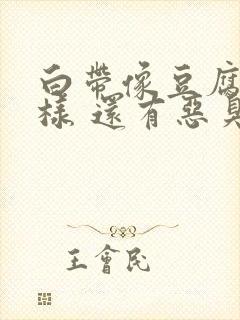 白帶像豆腐
樣 還有惡臭
王會民